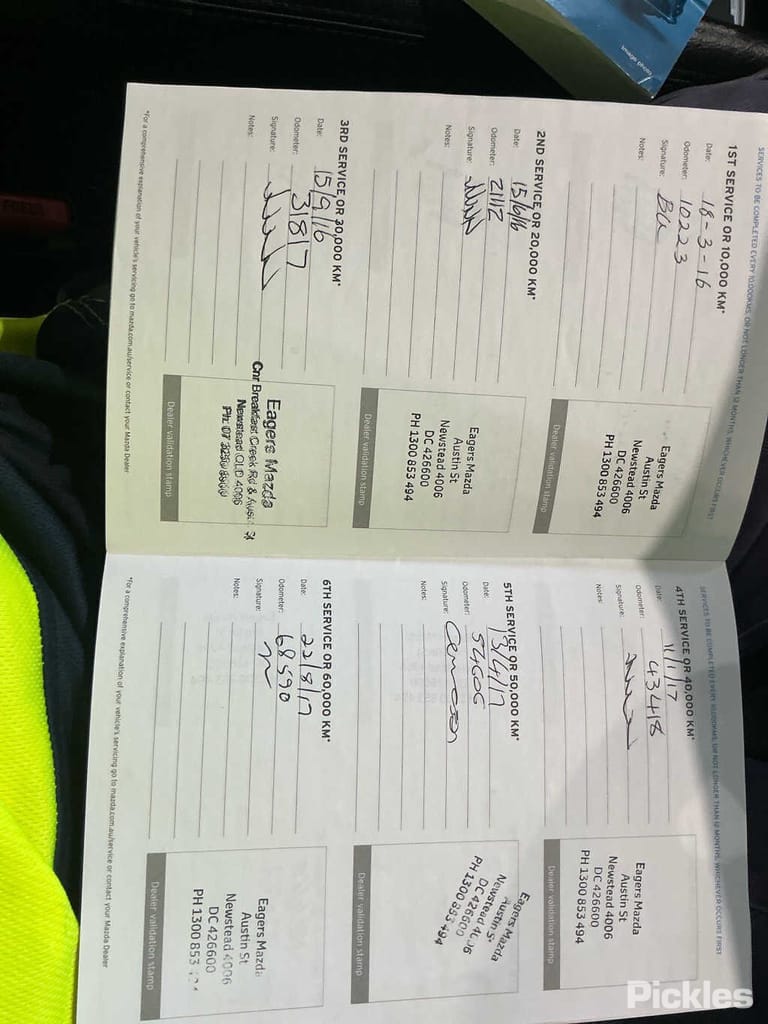 SERVICES TO BE COMPLETED EVERY 10,000KMS, OR NOT LONGER THAN 12 MONTHS, WHICHEVER OCCURS FIRST
1ST SERVICE OR 10,000 KM*
Date: 18-3-16
Odometer: 10223
Signature:
Notes:
Eagers Mazda
Austin St
Newstead 4006
DC 426600
PH 1300 853 494
Dealer validation stamp
2ND SERVICE OR 20,000 KM*
Date: 15/6/16
Odometer: 21112
Signature:
Notes:
Eagers Mazda
Austin St
Newstead 4006
DC 426600
PH 1300 853 494
Dealer validation stamp
3RD SERVICE OR 30,000 KM*
Date: 15/9/16
Odometer: 31817
Signature:
Notes:
Eagers Mazda
Cnr Breakfast Creek Rd & Austin St
Newstead QLD 4006
Dealer validation stamp
*For a comprehensive explanation of your vehicle's servicing go to mazda.com.au/service or contact your Mazda Dealer
SERVICES TO BE COMPLETED EVERY 10,000KMS, OR NOT LONGER THAN 12 MONTHS, WHICHEVER OCCURS FIRST
4TH SERVICE OR 40,000 KM*
Date: 11/1/17
Odometer: 43418
Signature:
Notes:
Eagers Mazda
Austin St
Newstead 4006
DC 426600
PH 1300 853 494
Dealer validation stamp
5TH SERVICE OR 50,000 KM*
Date: 13/4/17
Odometer: 54606
Signature:
Notes:
Eagers Mazda
Austin St
Newstead 4006
DC 426600
PH 1300 853 494
Dealer validation stamp
6TH SERVICE OR 60,000 KM*
Date: 22/8/17
Odometer: 68590
Signature:
Notes:
Eagers Mazda
Austin St
Newstead 4006
DC 426600
PH 1300 853
Dealer validation stamp
*For a comprehensive explanation of your vehicle's servicing go to mazda.com.au/service or contact your Mazda Dealer
Pickles